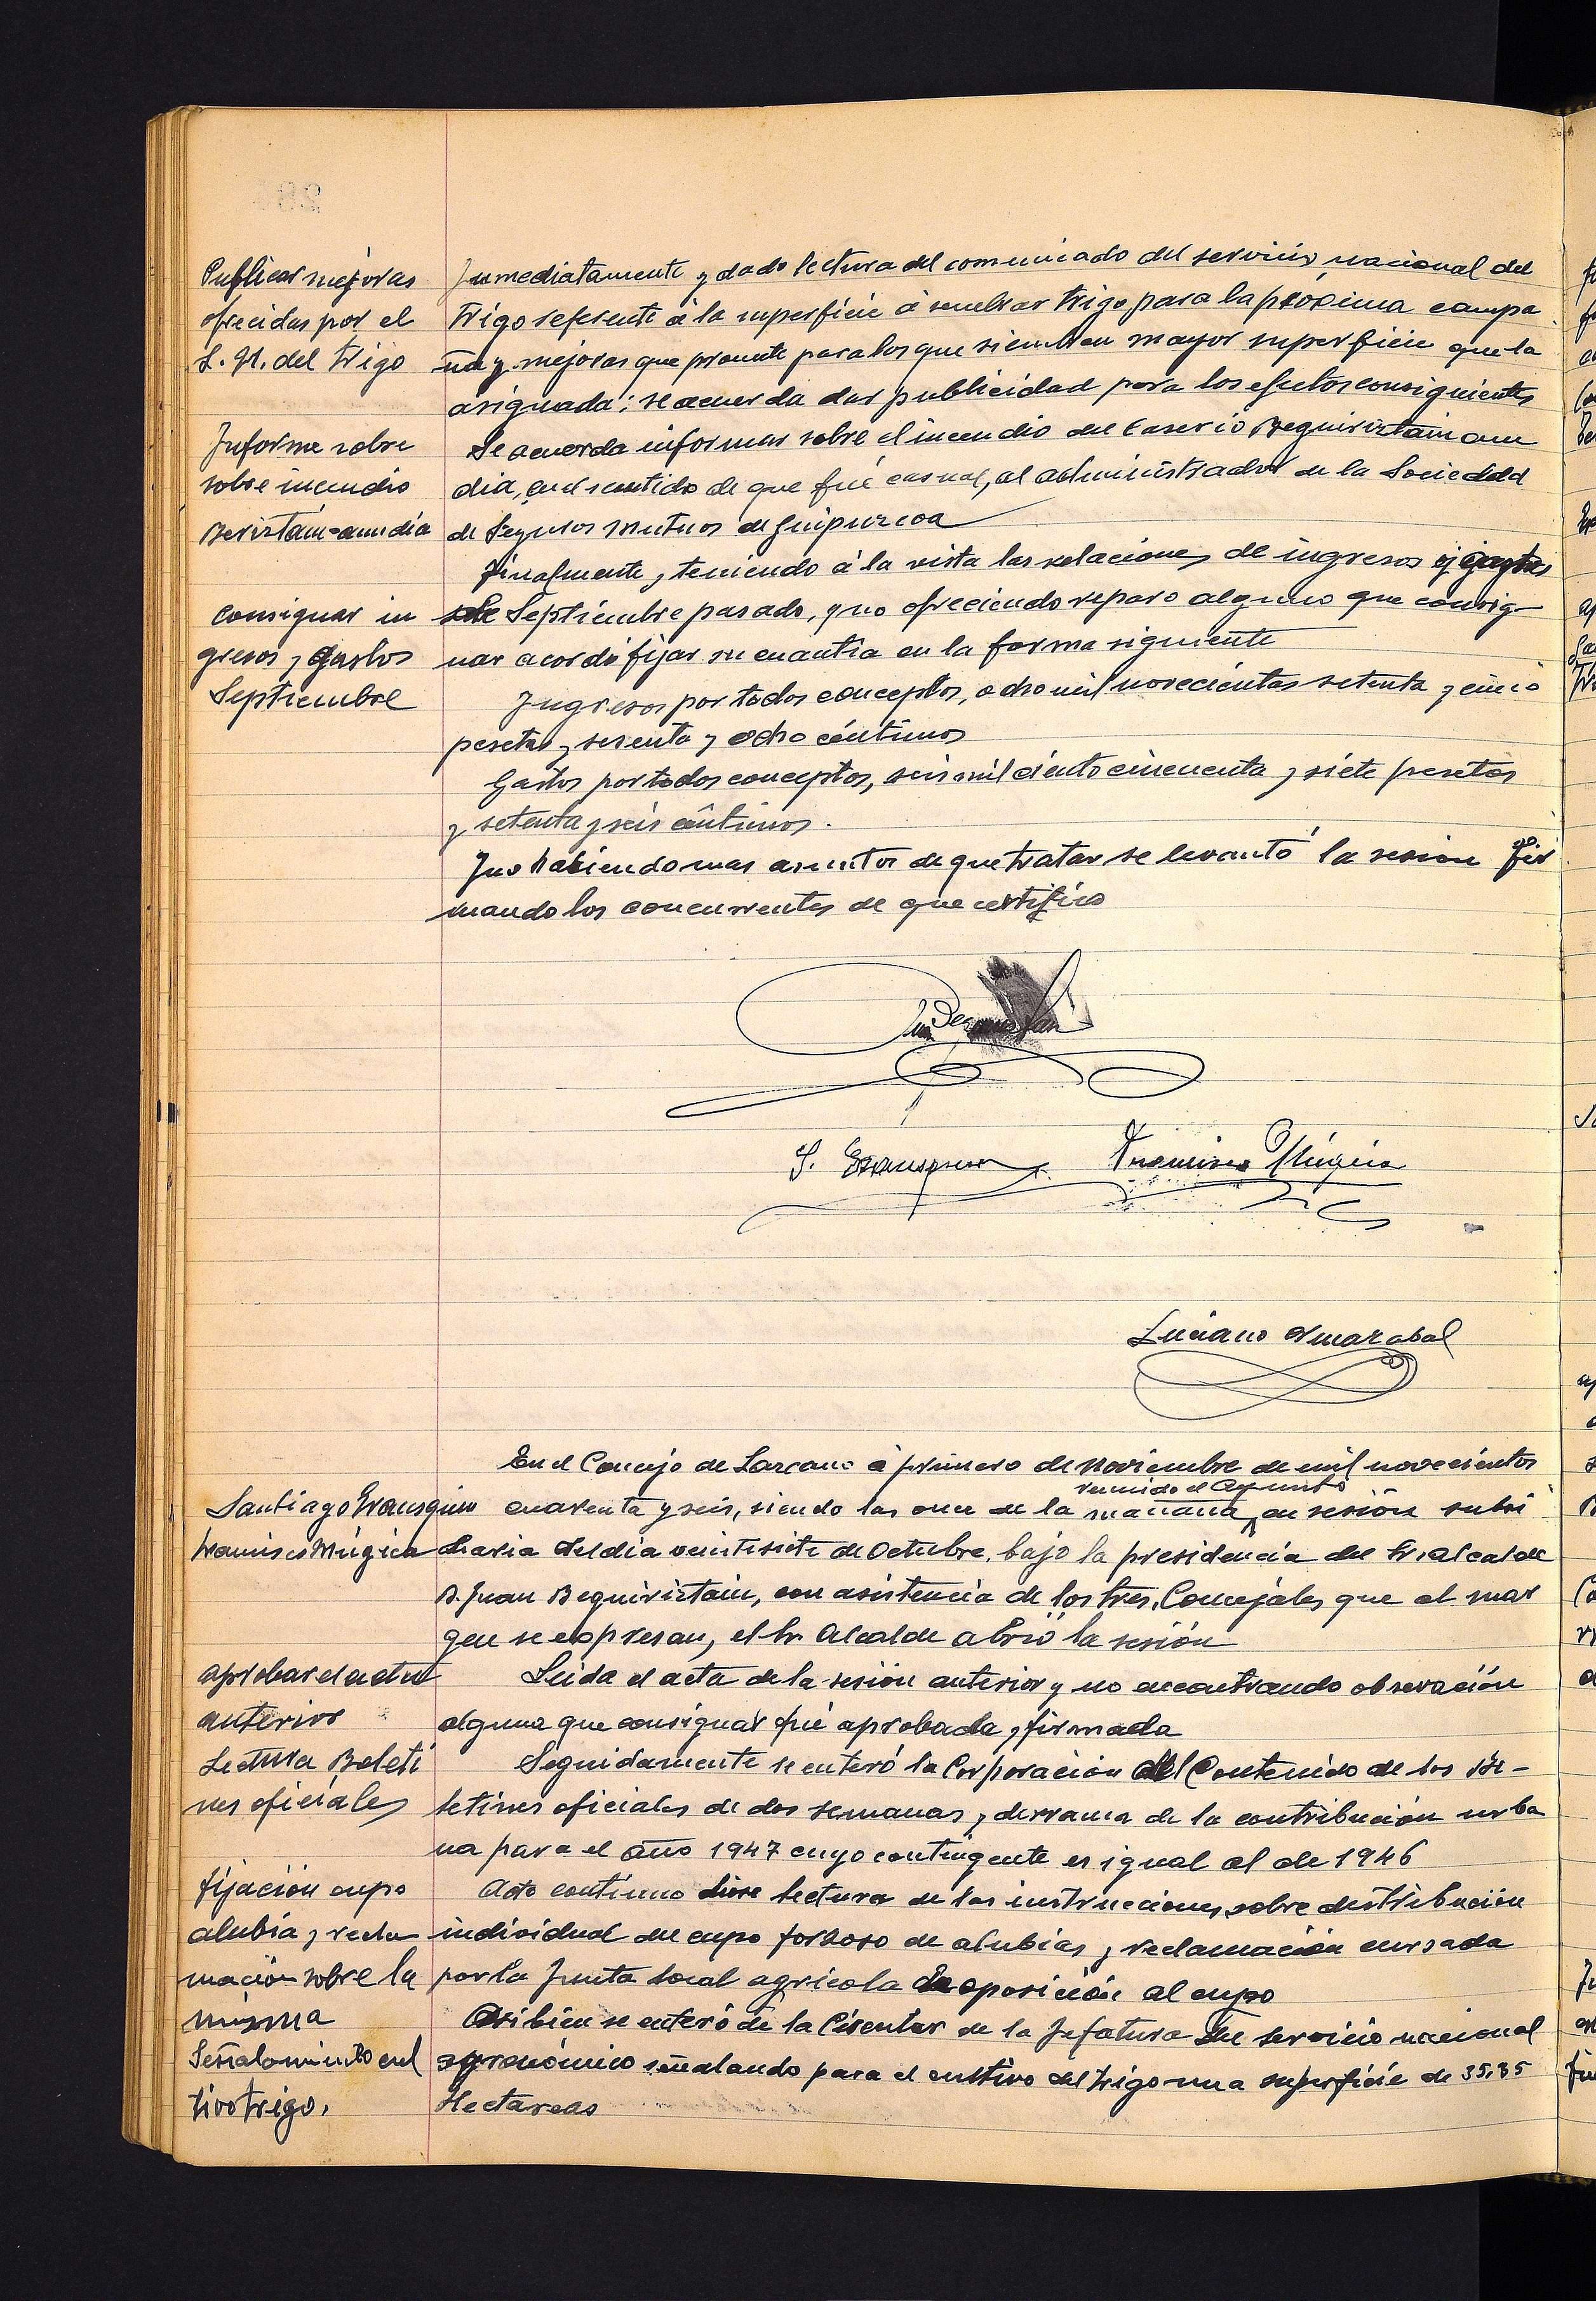 Publicar mejoras
ofrecidas por el
S. N. del trigo
Inmediatamente y dado lectura del comunicado del servicio nacional del
trigo referente á la superficie á sembrar trigo para la próxima campa
ña y mejoras que promete para los que siembren mayor superficie que la
asignada; se acuerda dar publicidad para los efectos consiguientes
Informe sobre
sobre incendio
Beristain-aundia
Se acuerda informar sobre el incendio del Caserio Beguiristain aun
dia, en el sentido de que fué casual, al administrador de la Sociedad
de Seguros Mutuos de Guipuzcoa
consignar in
gresos y gastos
Septiembre
Finalmente, teniendo á la vista las relaciones de ingresos y gastos
de Septiembre pasado, y no ofreciendo reparo alguno que consig-
nar acordó fijar su cuantia en la forma siguiente
Ingresos por todos conceptos, ocho mil novecientas setenta y cinco
pesetas y sesenta y ocho céntimos
Gastos por todos conceptos, seis mil ciento cincuenta y siete pesetas
y setenta y seis céntimos.
Y no habiendo mas asuntos de que tratar se levantó la sesion fir
mando los concurrentes de que certifico
S. Erausquin
Francisco Múgica
Luciano Amazabal
Santiago Erausquin
Francisco Múgica
En el Concejo de Lazcano á primero de Noviembre de mil novecientos
reunido el Ayunto
cuarenta y seis, siendo las once de la mañana, en sesión subsi
diaria del dia veintisiete de Octubre, bajo la presidencia del Sr. Alcalde
D. Juan Beguiristain, con asistencia de los tres Concejales que al mar
gen se expresan, el Sr. Alcalde abrió la sesión
aprobar el acta
anterior
Leida el acta de la sesión anterior y no encontrando observación
alguna que consignar fué aprobada y firmada
Lectura Boleti
nes oficiales
Seguidamente se enteró la Corporación del Contenido de los Bo-
letines oficiales de dos semanas, y derrama de la contribución urba
na para el año 1947 cuyo contingente es igual al de 1946
fijación cupo
alubia y recla
mación sobre la
misma
Acto continuo dióse lectura de las instrucciones sobre distribución
individual del cupo forzoso de alubias, y reclamación cursada
por la Junta local agricola de oposición al cupo
Señalamiento cul
tivo trigo.
Asi bien se enteró de la Circular de la Jefatura del servicio nacional
agronómico señalando para el cultivo del trigo una superficie de 35,35
Hectareas